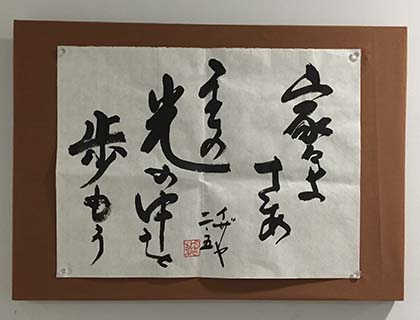 家々よ
さあ
主の
光の中を
歩もう
イザヤ
二・五